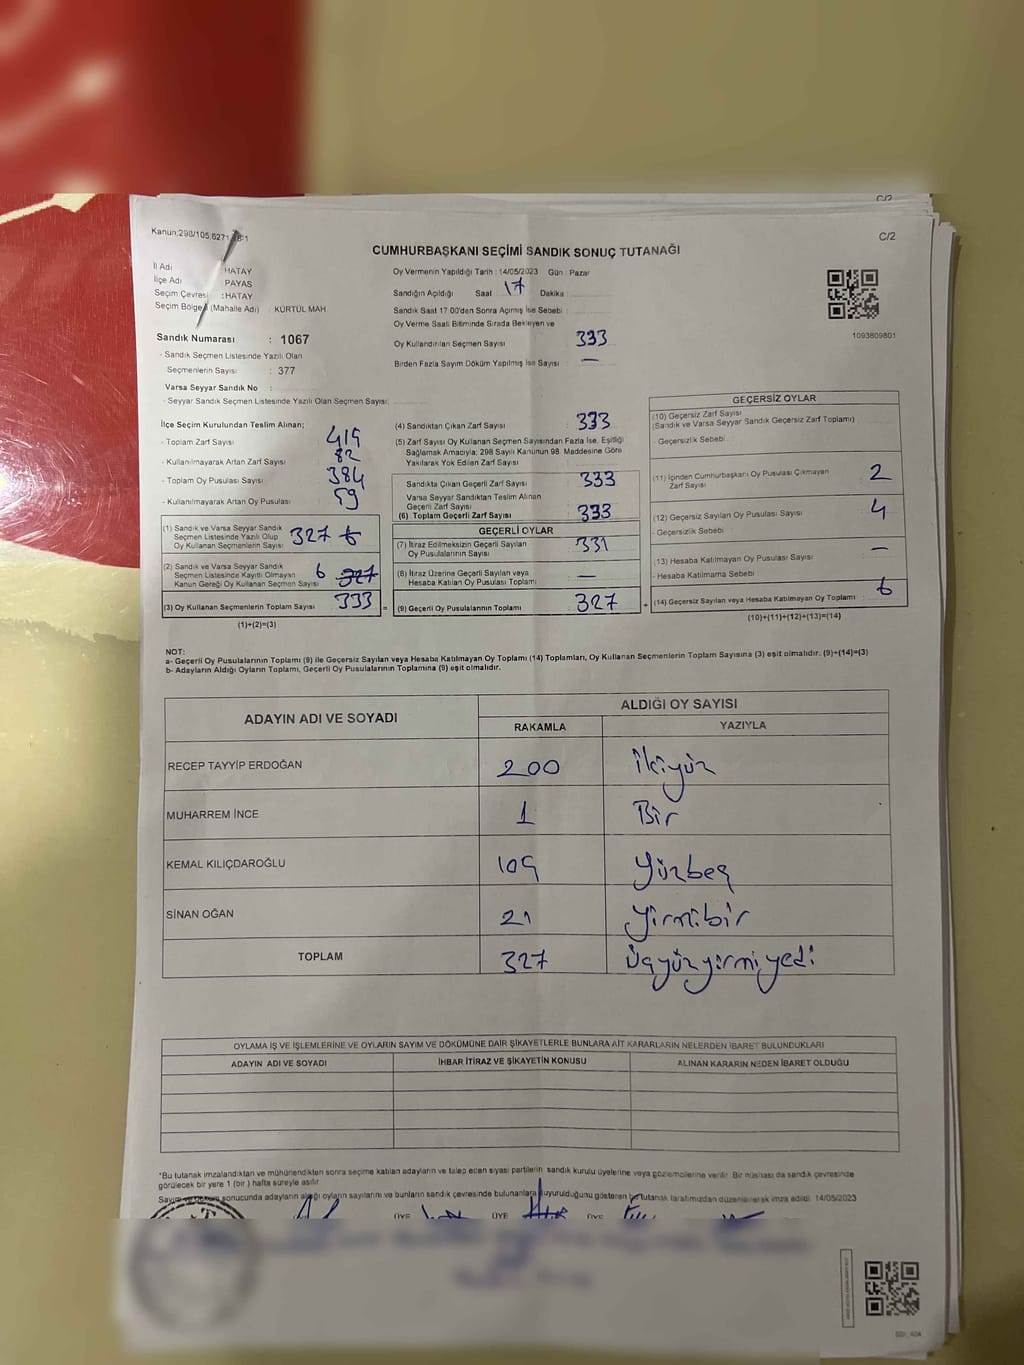 C/2
Kanun:298/105,6271
C/2
CUMHURBAŞKANI SEÇİMİ SANDIK SONUÇ TUTANAĞI
İl Adı HATAY
İlçe Adı PAYAS
Seçim Çevresi : HATAY
Seçim Bölgesi (Mahalle Adı) : KÜRTÜL MAH
Oy Vermenin Yapıldığı Tarih : 14/05/2023 Gün : Pazar
Sandığın Açıldığı Saat 17 Dakika
Sandık Saat 17.00'den Sonra Açımış İse Sebebi
Oy Verme Saati Bitiminde Sırada Bekleyen ve
Oy Kullandırılan Seçmen Sayısı 333
Birden Fazla Sayım Döküm Yapılmış İse Sayısı : —
1093809801
Sandık Numarası : 1067
- Sandık Seçmen Listesinde Yazılı Olan
Seçmenlerin Sayısı : 377
Varsa Seyyar Sandık No :
- Seyyar Sandık Seçmen Listesinde Yazılı Olan Seçmen Sayısı:
İlçe Seçim Kurulundan Teslim Alınan;
- Toplam Zarf Sayısı 419
- Kullanılmayarak Artan Zarf Sayısı 82
- Toplam Oy Pusulası Sayısı 384
- Kullanılmayarak Artan Oy Pusulası 59
(1) Sandık ve Varsa Seyyar Sandık
Seçmen Listesinde Yazılı Olup
Oy Kullanan Seçmenlerin Sayısı 327 6
(2) Sandık ve Varsa Seyyar Sandık
Seçmen Listesinde Kayıtlı Olmayan
Kanun Gereği Oy Kullanan Seçmen Sayısı 6 327
(3) Oy Kullanan Seçmenlerin Toplam Sayısı 333 =
(1)+(2)=(3)
(4) Sandıktan Çıkan Zarf Sayısı 333
(5) Zarf Sayısı Oy Kullanan Seçmen Sayısından Fazla İse, Eşitliği
Sağlamak Amacıyla, 298 Sayılı Kanunun 98. Maddesine Göre
Yakılarak Yok Edilen Zarf Sayısı
Sandıkta Çıkan Geçerli Zarf Sayısı 333
Varsa Seyyar Sandıktan Teslim Alınan
Geçerli Zarf Sayısı
(6) Toplam Geçerli Zarf Sayısı 333
GEÇERLİ OYLAR
(7) İtiraz Edilmeksizin Geçerli Sayılan
Oy Pusulalarının Sayısı 331
(8) İtiraz Üzerine Geçerli Sayılan veya
Hesaba Katılan Oy Pusulası Toplamı —
(9) Geçerli Oy Pusulalarının Toplamı 327 +
GEÇERSİZ OYLAR
(10) Geçersiz Zarf Sayısı
(Sandık ve Varsa Seyyar Sandık Geçersiz Zarf Toplamı)
- Geçersizlik Sebebi
(11) İçinden Cumhurbaşkanı Oy Pusulası Çıkmayan
Zarf Sayısı 2
(12) Geçersiz Sayılan Oy Pusulası Sayısı 4
- Geçersizlik Sebebi
(13) Hesaba Katılmayan Oy Pusulası Sayısı —
- Hesaba Katılmama Sebebi
(14) Geçersiz Sayılan veya Hesaba Katılmayan Oy Toplamı 6
(10)+(11)+(12)+(13)=(14)
NOT:
a- Geçerli Oy Pusulalarının Toplamı (9) ile Geçersiz Sayılan veya Hesaba Katılmayan Oy Toplamı (14) Toplamları, Oy Kullanan Seçmenlerin Toplam Sayısına (3) eşit olmalıdır. (9)+(14)=(3)
b- Adayların Aldığı Oyların Toplamı, Geçerli Oy Pusulalarının Toplamına (9) eşit olmalıdır.
ADAYIN ADI VE SOYADI ALDIĞI OY SAYISI
RAKAMLA YAZIYLA
RECEP TAYYİP ERDOĞAN 200 İkiyüz
MUHARREM İNCE 1 Bir
KEMAL KILIÇDAROĞLU 105 Yüzbeş
SİNAN OĞAN 21 Yirmibir
TOPLAM 327 Üçyüzyirmiyedi
OYLAMA İŞ VE İŞLEMLERİNE VE OYLARIN SAYIM VE DÖKÜMÜNE DAİR ŞİKAYETLERLE BUNLARA AİT KARARLARIN NELERDEN İBARET BULUNDUKLARI
ADAYIN ADI VE SOYADI İHBAR İTİRAZ VE ŞİKAYETİN KONUSU ALINAN KARARIN NEDEN İBARET OLDUĞU
*Bu tutanak imzalandıktan ve mühürlendikten sonra seçime katılan adayların ve talep eden siyasi partilerin sandık kurulu üyelerine veya gözlemcilerine verilir. Bir nüshası da sandık çevresinde
görülecek bir yere 1 (bir) hafta süreyle asılır.
Sayım sonucunda adayların aldığı oyların sayılarını ve bunların sandık çevresinde bulunanlara duyurulduğunu gösteren bu tutanak tarafımızdan düzenlenerek imza edildi. 14/05/2023
ÜYE ÜYE ÜYE